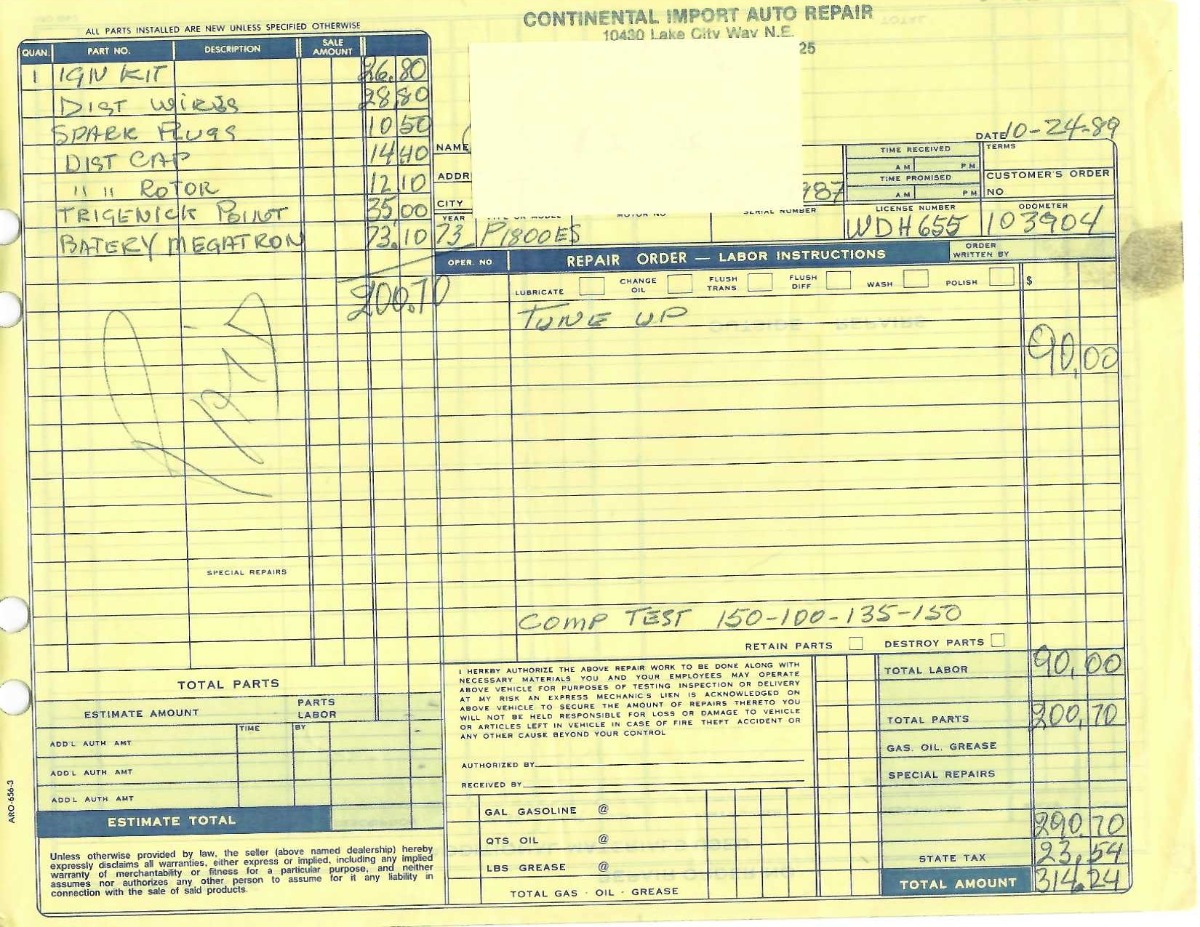 CONTINENTAL IMPORT AUTO REPAIR
10430 Lake City Way N.E.
25
ALL PARTS INSTALLED ARE NEW UNLESS SPECIFIED OTHERWISE
QUAN. PART NO. DESCRIPTION SALE AMOUNT
1 IGN KIT 26.80
DIST WIRES 28.80
SPARK PLUGS 10.50
DIST CAP 14.40
" " ROTOR 12.10
TRIGENICK POINT 35.00
BATERY MEGATRON 73.10
200.70
SPECIAL REPAIRS
DATE 10-24-89
NAME
ADDR
CITY
987
TIME RECEIVED
AM PM
TIME PROMISED
AM PM
TERMS
CUSTOMER'S ORDER NO
YEAR TYPE OR MODEL MOTOR NO SERIAL NUMBER LICENSE NUMBER ODOMETER
73 P1800ES WDH655 103904
OPER. NO REPAIR ORDER — LABOR INSTRUCTIONS ORDER WRITTEN BY
LUBRICATE CHANGE OIL FLUSH TRANS FLUSH DIFF WASH POLISH $
TUNE UP
90.00
COMP TEST 150-100-135-150
RETAIN PARTS DESTROY PARTS
TOTAL PARTS
ESTIMATE AMOUNT PARTS LABOR
TIME BY
ADD'L AUTH AMT
ADD'L AUTH AMT
ADD'L AUTH AMT
ESTIMATE TOTAL
Unless otherwise provided by law, the seller (above named dealership) hereby
expressly disclaims all warranties, either express or implied, including any implied
warranty of merchantability or fitness for a particular purpose, and neither
assumes nor authorizes any other person to assume for it any liability in
connection with the sale of said products.
I HEREBY AUTHORIZE THE ABOVE REPAIR WORK TO BE DONE ALONG WITH
NECESSARY MATERIALS YOU AND YOUR EMPLOYEES MAY OPERATE
ABOVE VEHICLE FOR PURPOSES OF TESTING INSPECTION OR DELIVERY
AT MY RISK AN EXPRESS MECHANIC'S LIEN IS ACKNOWLEDGED ON
ABOVE VEHICLE TO SECURE THE AMOUNT OF REPAIRS THERETO YOU
WILL NOT BE HELD RESPONSIBLE FOR LOSS OR DAMAGE TO VEHICLE
OR ARTICLES LEFT IN VEHICLE IN CASE OF FIRE THEFT ACCIDENT OR
ANY OTHER CAUSE BEYOND YOUR CONTROL
AUTHORIZED BY
RECEIVED BY
GAL GASOLINE @
QTS OIL @
LBS GREASE @
TOTAL GAS · OIL · GREASE
TOTAL LABOR 90.00
TOTAL PARTS 200.70
GAS. OIL. GREASE
SPECIAL REPAIRS
290.70
STATE TAX 23.54
TOTAL AMOUNT 314.24
ARO-656-3